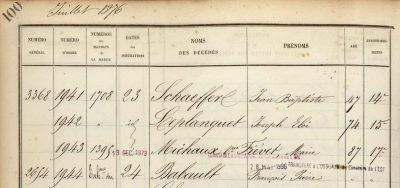 100
Juillet 1876
NUMÉRO GÉNÉRAL NUMÉRO D'ORDRE NUMÉRO DES MANDATS DE LA MAIRIE DATES DES INHUMATIONS NOMS DES DÉCÉDÉS PRÉNOMS AGE
3368 1941 1708 23 Schaeffer Jean Baptiste 47 14
1942 " id Leplanquet Joseph Eloi 74 15
1943 1395 Michaux Vve Fiévet Marie 87 17
13 DEC. 1973
1944 24 Babault François Pierre